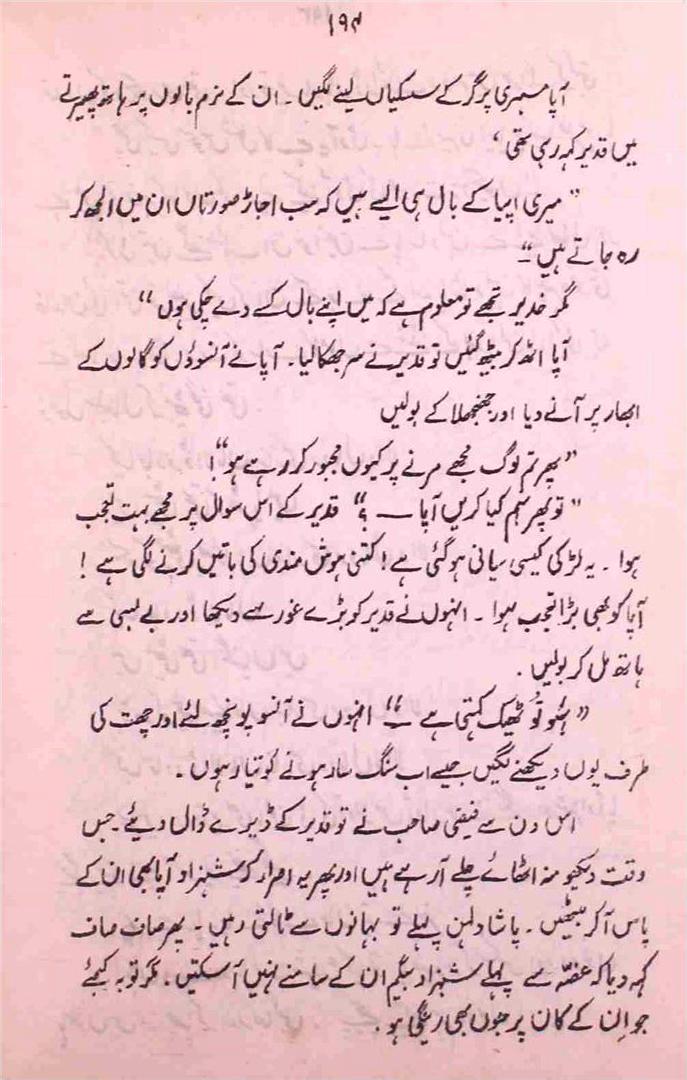 ۱۹۴
آپا مسہری پر گر کے سسکیاں لینے لگیں ۔ ان کے نرم بالوں پر ہاتھ پھیرتے
میں قدیر کہہ رہی تھی ‘
” میری اپیا کے بال ہی ایسے ہیں کہ سب اجاڑ صورتاں ان میں الجھ کر
رہ جاتے ہیں “
مگر خدیر تجھے تو معلوم ہے کہ میں اپنے بال کسے دے چکی ہوں “
آپا اٹھ کر بیٹھ گئیں تو قدیر نے سر جھکا لیا۔ آپا نے آنسوؤں کو گالوں کے
ابھار پر آنے دیا اور جھنجھلا کے بولیں
” پھر تم لوگ مجھے مرنے پر کیوں مجبور کر رہے ہو “!
” تو پھر ہم کیا کریں آپا ـــ ؟ “ قدیر کے اس سوال پر مجھے بہت تعجب
ہوا ۔ یہ لڑکی کیسی سیانی ہو گئی ہے ! کتنی ہوش مندی کی باتیں کرنے لگی ہے !
آپا کو بھی بڑا تعجب ہوا ۔ انہوں نے قدیر کو بڑے غور سے دیکھا اور بے بسی سے
ہاتھ مل کر بولیں ۔
” ہو تُو ٹھیک کہتی ہے ـ “ انہوں نے آنسو پونچھ لئے اور چھت کی
طرف یوں دیکھنے لگیں جیسے اب سنگ سار ہونے کو تیار ہوں ۔
اس دن سے فیضی صاحب نے تو قدیر کے ڈیرے ڈال دیئے ۔ جس
وقت دیکھو منہ اٹھائے چلے آ رہے ہیں اور پھر یہ اصرار کہ شہزاد آپا بھی ان کے
پاس آ کر بیٹھیں ۔ پاشا دلہن پہلے تو بہانوں سے ٹالتی رہیں ۔ پھر صاف صاف
کہہ دیا کہ عقد سے پہلے شہزاد بیگم ان کے سامنے نہیں آ سکتیں ۔ مگر توبہ کیجئے
جو ان کے کان پر جوں بھی رینگی ہو ۔